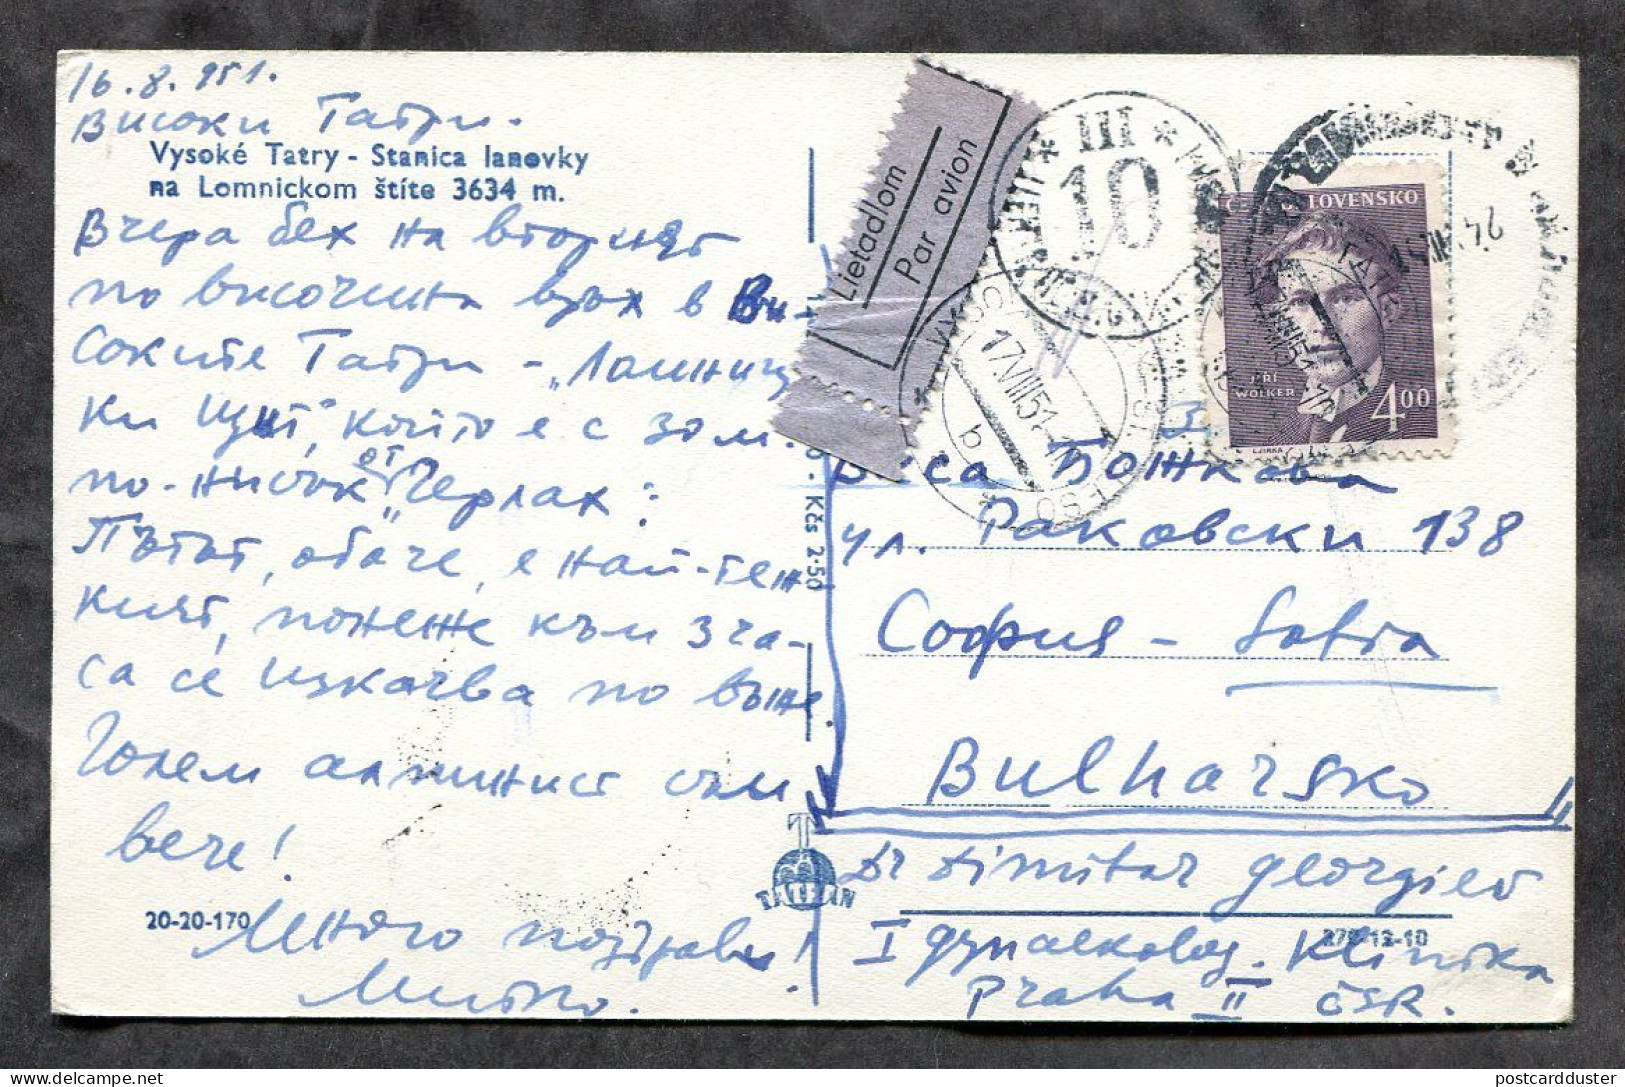 16.8.951.
Високи Татри.
Vysoké Tatry - Stanica lanovky
na Lomnickom štíte 3634 m.
Вчера бех на вторият
по височина връх в Ви-
соките Татри - „Ломниц
ки Щит", който е с 30 м.
по-нисък от „Герлах":
Пътят, обаче, е най-теж
кият, понеже към 3 ча-
са се изкачва по въже.
Голем алпинист съм
вече!
Много поздрави!
Митко.
20-20-170
Kčs 2·50
TATRAN
Lietadlom
Par avion
III
10
17.VIII.51
b
ČESKOSLOVENSKO
JIŘÍ
WOLKER
4 00
Божкова
ул. Раковски 138
София - Sofia
Bulharsko
Dr Dimitar Georgiev
I gynaekolog. Klinika
Praha II ČSR.
postcardduster